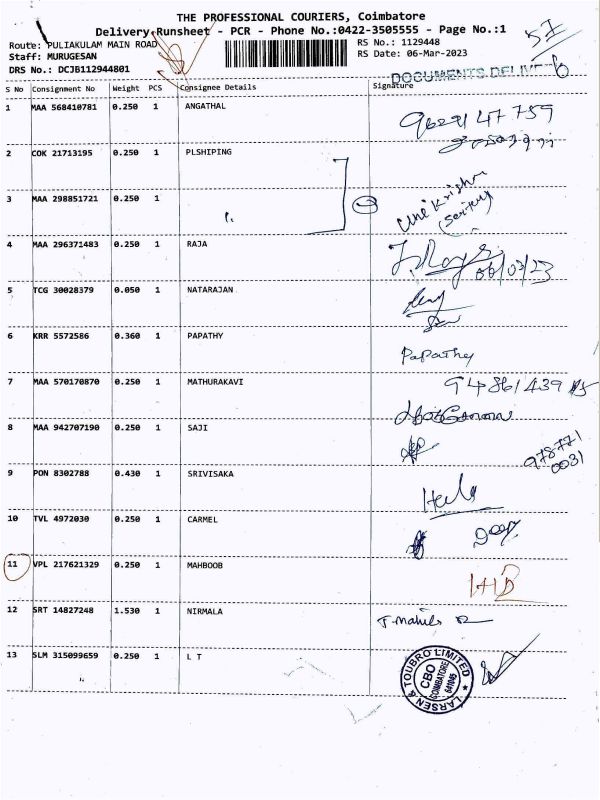 THE PROFESSIONAL COURIERS, Coimbatore
Delivery Runsheet - PCR - Phone No.:0422-3505555 - Page No.:1
Route: PULIAKULAM MAIN ROAD
Staff: MURUGESAN
DRS No.: DCJB112944801
RS No.: 1129448
RS Date: 06-Mar-2023
57
DOCUMENTS DELIVE
S No Consignment No Weight PCS Consignee Details Signature
1 MAA 568410781 0.250 1 ANGATHAL
9629147759
2 COK 21713195 0.250 1 PLSHIPING
3 MAA 298851721 0.250 1
Krishna
4 MAA 296371483 0.250 1 RAJA
06/03/23
5 TCG 30028379 0.050 1 NATARAJAN
6 KRR 5572586 0.360 1 PAPATHY
Papathy
7 MAA 570170870 0.250 1 MATHURAKAVI
8 MAA 942707190 0.250 1 SAJI
978771
0031
9 PON 8302788 0.430 1 SRIVISAKA
10 TVL 4972030 0.250 1 CARMEL
11 VPL 217621329 0.250 1 MAHBOOB
12 SRT 14827248 1.530 1 NIRMALA
13 SLM 315099659 0.250 1 L T
LARSEN & TOUBRO LIMITED
CBO
COIMBATORE
641045